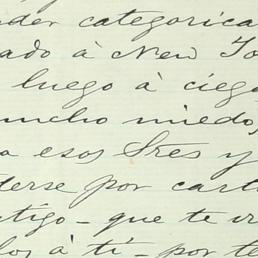 der categorica
ado à New Yo
luego à cieg
mucho miedo,
a esos Sres y
derse por cart
tigo - que te
los à tí - por te